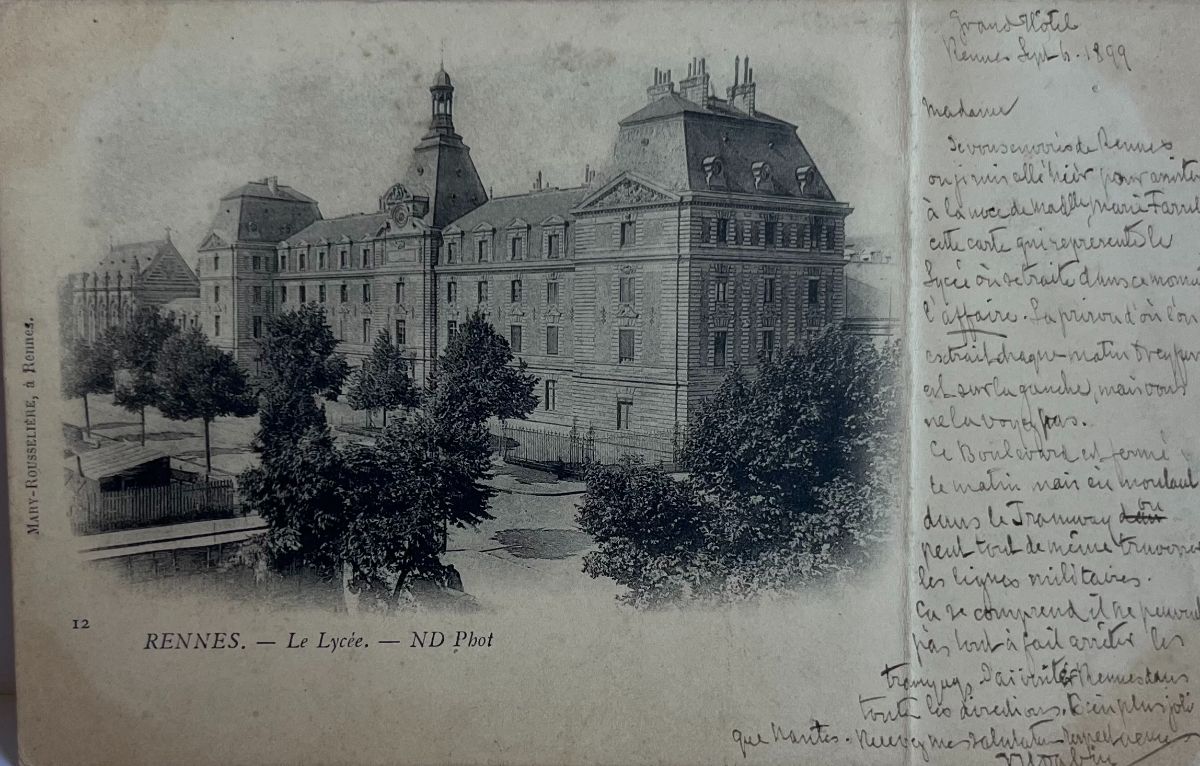 MARY-ROUSSELIÈRE, à Rennes.
12
RENNES. — Le Lycée. — ND Phot
Grand Hôtel
Rennes Sept 6. 1899
Madame
Je vous envoie de Rennes
où je suis allé hier pour assister
à la noce de Madlle Marie
cette carte qui représente le
Lycée où se traite dans ce mome
l'affaire. La prison d'où l'on
extrait chaque matin Dreyfus
est sur la gauche, mais vous
ne la voyez pas.
Ce Boulevard est fermé
le matin mais en montant
dans le Tramway on
peut tout de même traverser
les lignes militaires.
Ca se comprend il ne peuvent
pas tout à fait arrêter les
tramways. J'ai visité Rennes dans
toute les directions. Bien plus joli
que Nantes. Recevez mes salutations